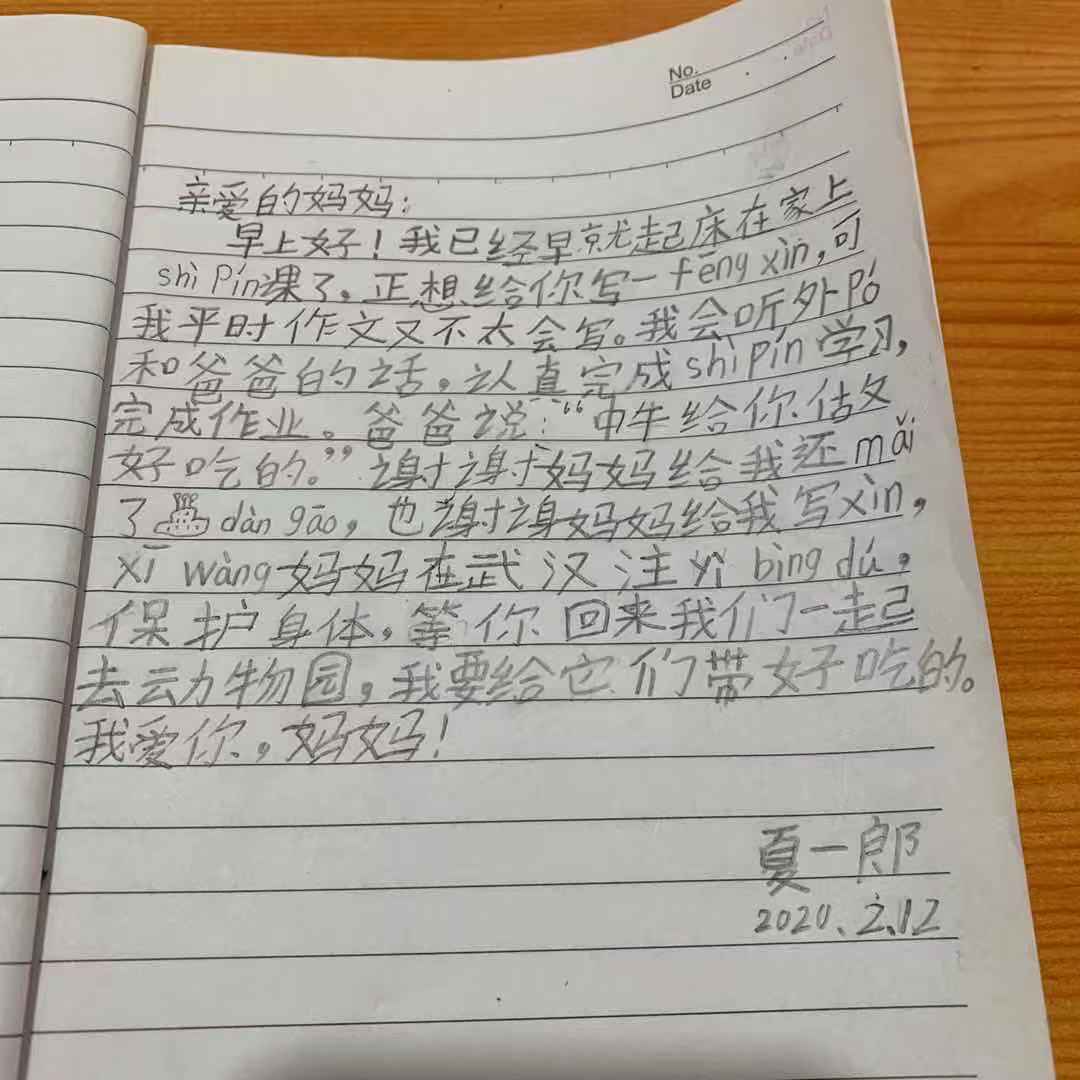 No.
Date
亲爱的妈妈：
早上好！我已经早就起床在家上
shì Pín课了，正想给你写一fēng xìn，可
我平时作文又不太会写。我会听外Pó
和爸爸的话，认真完成shì pín学习，
完成作业。爸爸说：“中午给你估文
好吃的。”谢谢妈妈给我还mǎi
了 dàn gāo，也谢谢妈妈给我写xìn，
xī wàng妈妈在武汉注父bìng dú，
保护身体，等你回来我们一起
去动物园，我要给它们带好吃的。
我爱你，妈妈！
夏一郎
2020、2、12